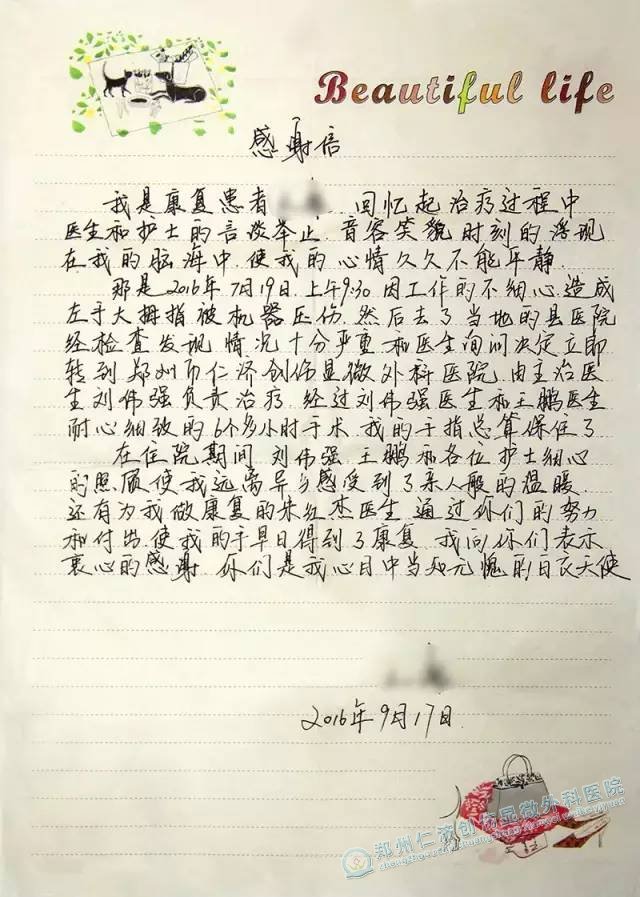 Beautiful life
感谢信
我是康复患者 回忆起治疗过程中
医生和护士的言谈举止.音容笑貌时刻的浮现
在我的脑海中.使我的心情久久不能平静.
那是2016年7月19日.上午9:30因工作的不细心.造成
左手大拇指被机器压伤.然后去了当地的县医院
经检查发现情况十分严重和医生询问决定立即
转到郑州市仁济创伤显微外科医院.由主治医
生刘伟强负责治疗.经过刘伟强医生和王鹏医生
耐心细致的6个多小时手术.我的手指总算保住了
在住院期间.刘伟强.王鹏和各位护士细心
的照顾使我远离异乡感受到了亲人般的温暖.
还有为我做康复的朱红杰医生.通过你们的努力
和付出.使我的手早日得到了康复.我向你们表示
衷心的感谢.你们是我心目中当之无愧的白衣天使
2016年9月17日.
郑州仁济创伤显微外科医院